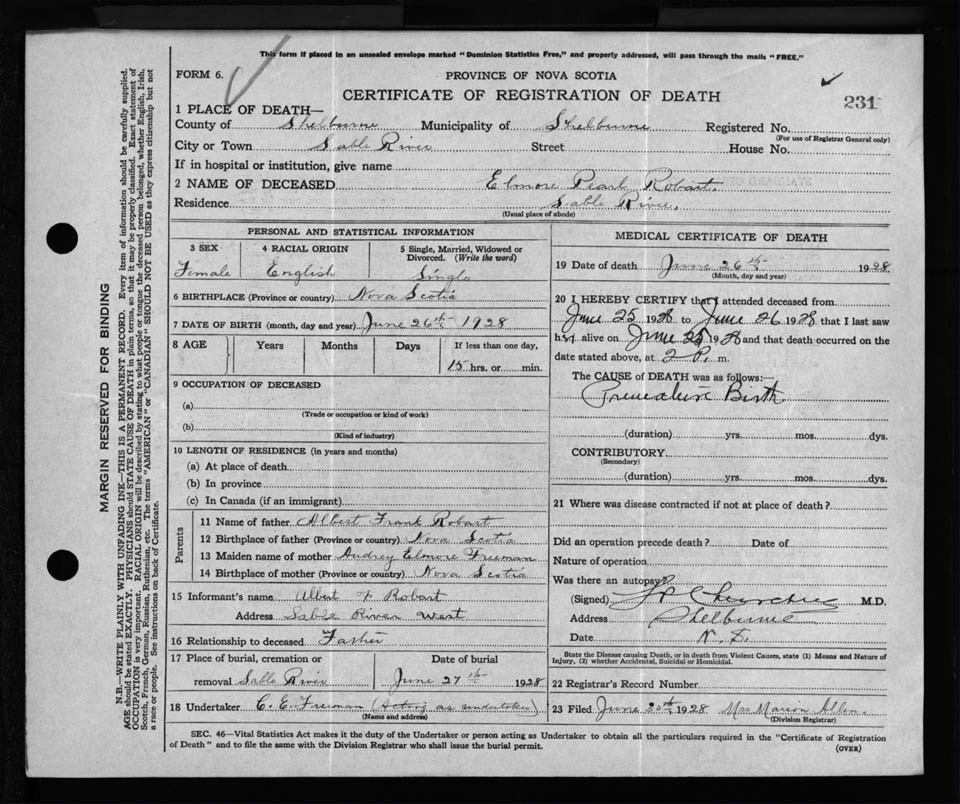 This form if placed in an unsealed envelope marked "Dominion Statistics Free," and properly addressed, will pass through the mails "FREE."
FORM 6.
PROVINCE OF NOVA SCOTIA
CERTIFICATE OF REGISTRATION OF DEATH
231
1 PLACE OF DEATH—
County of Shelburne Municipality of Shelburne Registered No.
(For use of Registrar General only)
City or Town Sable River Street House No.
If in hospital or institution, give name
2 NAME OF DECEASED Elmore Pearl Robart.
Residence Sable River.
(Usual place of abode)
PERSONAL AND STATISTICAL INFORMATION
3 SEX
Female
4 RACIAL ORIGIN
English
5 Single, Married, Widowed or Divorced. (Write the word)
Single
6 BIRTHPLACE (Province or country) Nova Scotia
7 DATE OF BIRTH (month, day and year) June 26th 1928
8 AGE Years Months Days If less than one day,
15 hrs. or min.
9 OCCUPATION OF DECEASED
(a)
(Trade or occupation or kind of work)
(b)
(Kind of industry)
10 LENGTH OF RESIDENCE (in years and months)
(a) At place of death
(b) In province
(c) In Canada (if an immigrant)
Parents
11 Name of father Albert Frank Robart
12 Birthplace of father (Province or country) Nova Scotia
13 Maiden name of mother Audrey Elmore Freeman
14 Birthplace of mother (Province or country) Nova Scotia
15 Informant's name Albert F Robart
Address Sable River West
16 Relationship to deceased Father
17 Place of burial, cremation or
removal Sable River
Date of burial
June 27th 1928
18 Undertaker C. E. Freeman (Acting as undertaker)
(Name and address)
MEDICAL CERTIFICATE OF DEATH
19 Date of death June 26th 1928
(Month, day and year)
20 I HEREBY CERTIFY that I attended deceased from
June 25 1928 to June 26 1928 that I last saw
her alive on June 25 1928 and that death occurred on the
date stated above, at 2 P. m.
The CAUSE of DEATH was as follows:—
Premature Birth
(duration) yrs. mos. dys.
CONTRIBUTORY
(Secondary)
(duration) yrs. mos. dys.
21 Where was disease contracted if not at place of death?
Did an operation precede death? Date of
Nature of operation
Was there an autopsy?
(Signed) Churchill M.D.
Address Shelburne
Date N. S.
State the Disease causing Death, or in death from Violent Causes, state (1) Means and Nature of
Injury, (2) whether Accidental, Suicidal or Homicidal.
22 Registrar's Record Number
23 Filed June 1928 Mrs Marion Allen.
(Division Registrar)
SEC. 46—Vital Statistics Act makes it the duty of the Undertaker or person acting as Undertaker to obtain all the particulars required in the "Certificate of Registration
of Death" and to file the same with the Division Registrar who shall issue the burial permit.
(OVER)
MARGIN RESERVED FOR BINDING
N.B.—WRITE PLAINLY WITH UNFADING INK—THIS IS A PERMANENT RECORD. Every item of information should be carefully supplied.
AGE should be stated EXACTLY. PHYSICIANS should STATE CAUSE OF DEATH in plain terms, so that it may be properly classified. Exact statement of
OCCUPATION is very important. RACIAL ORIGIN will be described by stating to what people or tongue the deceased person belonged, whether English, Irish,
Scotch, French, German, Russian, Ruthenian, etc. The terms "AMERICAN" or "CANADIAN" SHOULD NOT BE USED as they express citizenship but not
a race or people. See instructions on back of Certificate.